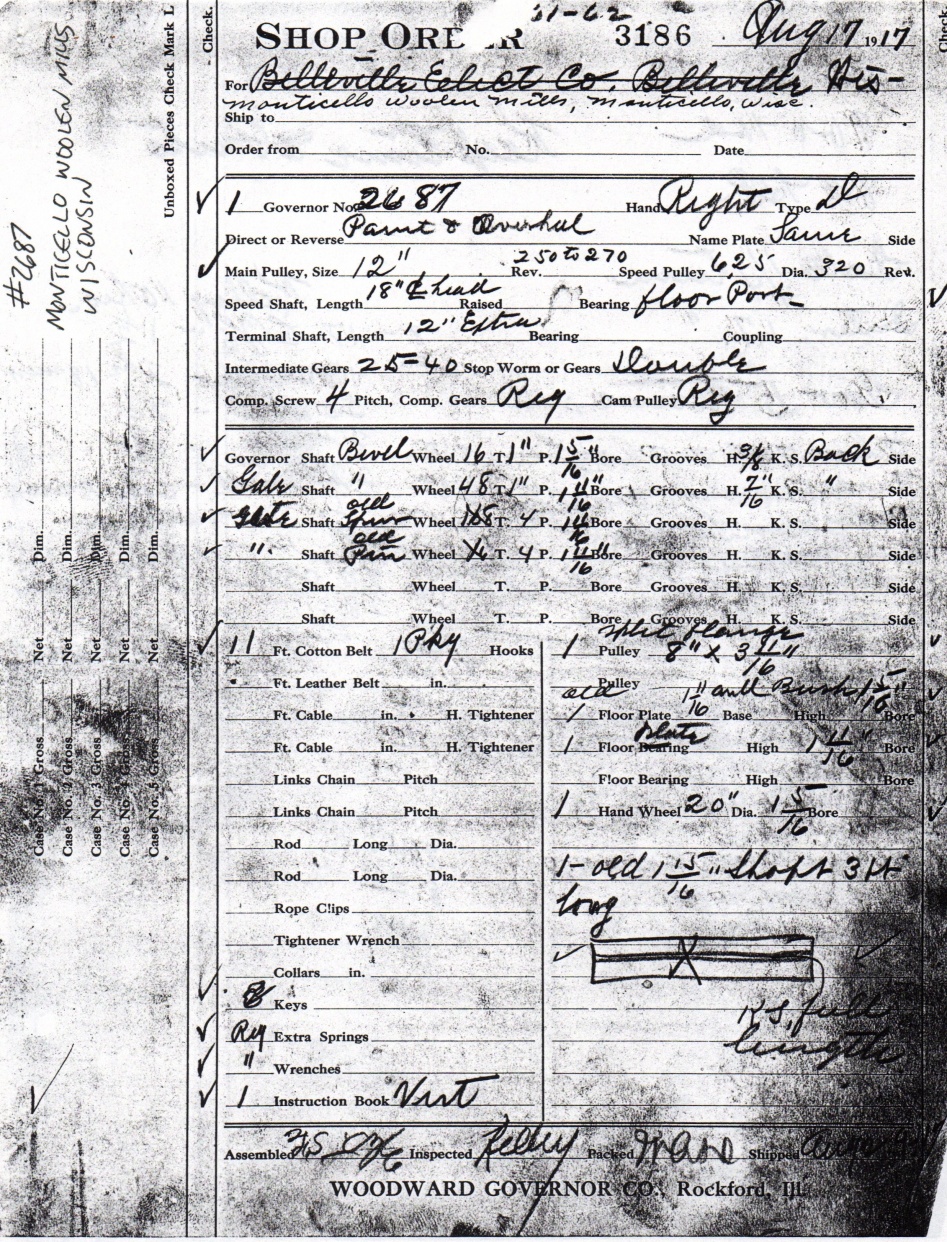 51-62
SHOP ORDER 3186 Aug 17 1917
For Belleville Elect Co. Belleville Wis-
Monticello Woolen Mills, Monticello, Wisc.
Ship to
Order from No. Date
1 Governor No. 2687 Hand Right Type D
Direct or Reverse Paint & Overhul Name Plate Same Side
Main Pulley, Size 12" Rev. 250 to 270 Speed Pulley 6.25 Dia. 320 Rev.
Speed Shaft, Length 18" ℄ head Raised Bearing floor Post
Terminal Shaft, Length 12" Extra Bearing Coupling
Intermediate Gears 25-40 Stop Worm or Gears Double
Comp. Screw 4 Pitch, Comp. Gears Reg Cam Pulley Reg
Governor Shaft Bevel Wheel 16 T. 1" P. 1 5/16 Bore Grooves H. 3/8 K. S. Back Side
Gate Shaft " Wheel 48 T. 1" P. 1 11/16 Bore Grooves H. 7/16" K. S. " Side
Gate Shaft old Spur Wheel T. 4 P. Bore Grooves H. K. S. Side
" Shaft old Pin Wheel T. 4 P. 1 11/16" Bore Grooves H. K. S. Side
Shaft Wheel T. P. Bore Grooves H. K. S. Side
Shaft Wheel T. P. Bore Grooves H. K. S. Side
11 Ft. Cotton Belt 1 Pkg Hooks
Ft. Leather Belt in.
Ft. Cable in. H. Tightener
Ft. Cable in. H. Tightener
Links Chain Pitch
Links Chain Pitch
Rod Long Dia.
Rod Long Dia.
Rope Clips
Tightener Wrench
Collars in.
8 Keys
Reg Extra Springs
" Wrenches
1 Instruction Book Vert
flange
1 Pulley 8" x 3 11/16"
Pulley
old 1 11/16" and Bush 1 5/16"
1 Floor Plate Base High Bore
Plate
1 Floor Bearing High 1 11/16" Bore
Floor Bearing High Bore
1 Hand Wheel 20" Dia. 1 5/16 Bore
1- old 1 15/16" Shaft 3 ft
long
K S full
length
Assembled Inspected Kelley Packed Shipped
WOODWARD GOVERNOR CO., Rockford, Ill.
#2687
MONTICELLO WOOLEN MILLS
WISCONSIN
Unboxed Pieces Check Mark L
Check.
Check.
Case No. 1 Gross Net Dim.
Case No. 2 Gross Net Dim.
Case No. 3 Gross Net Dim.
Case No. 4 Gross Net Dim.
Case No. 5 Gross Net Dim.